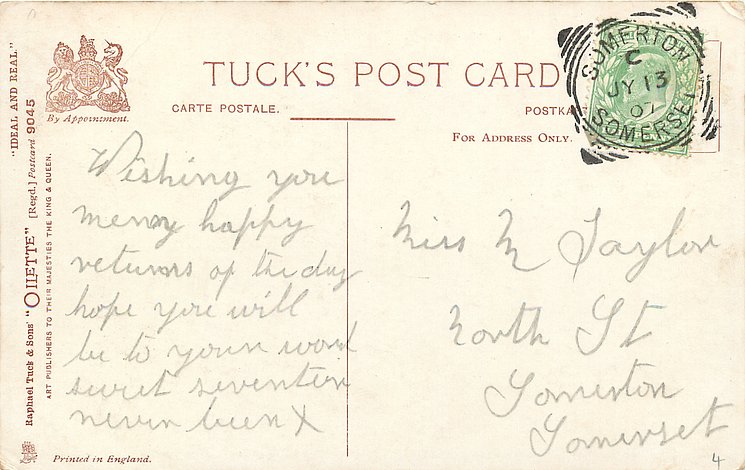 TUCK'S POST CARD
CARTE POSTALE.
POSTKA
FOR ADDRESS ONLY.
By Appointment.
"IDEAL AND REAL."
Raphael Tuck & Sons' "OILETTE" [Regd.] Postcard 9045
ART PUBLISHERS TO THEIR MAJESTIES THE KING & QUEEN.
Printed in England.
SOMERTON
C
JY 13
07
SOMERSET
Wishing you
merry happy
returns of the day
hope you will
be to your word
sweet seventeen
never been X
Miss M Taylor
North St
Somerton
Somerset
4